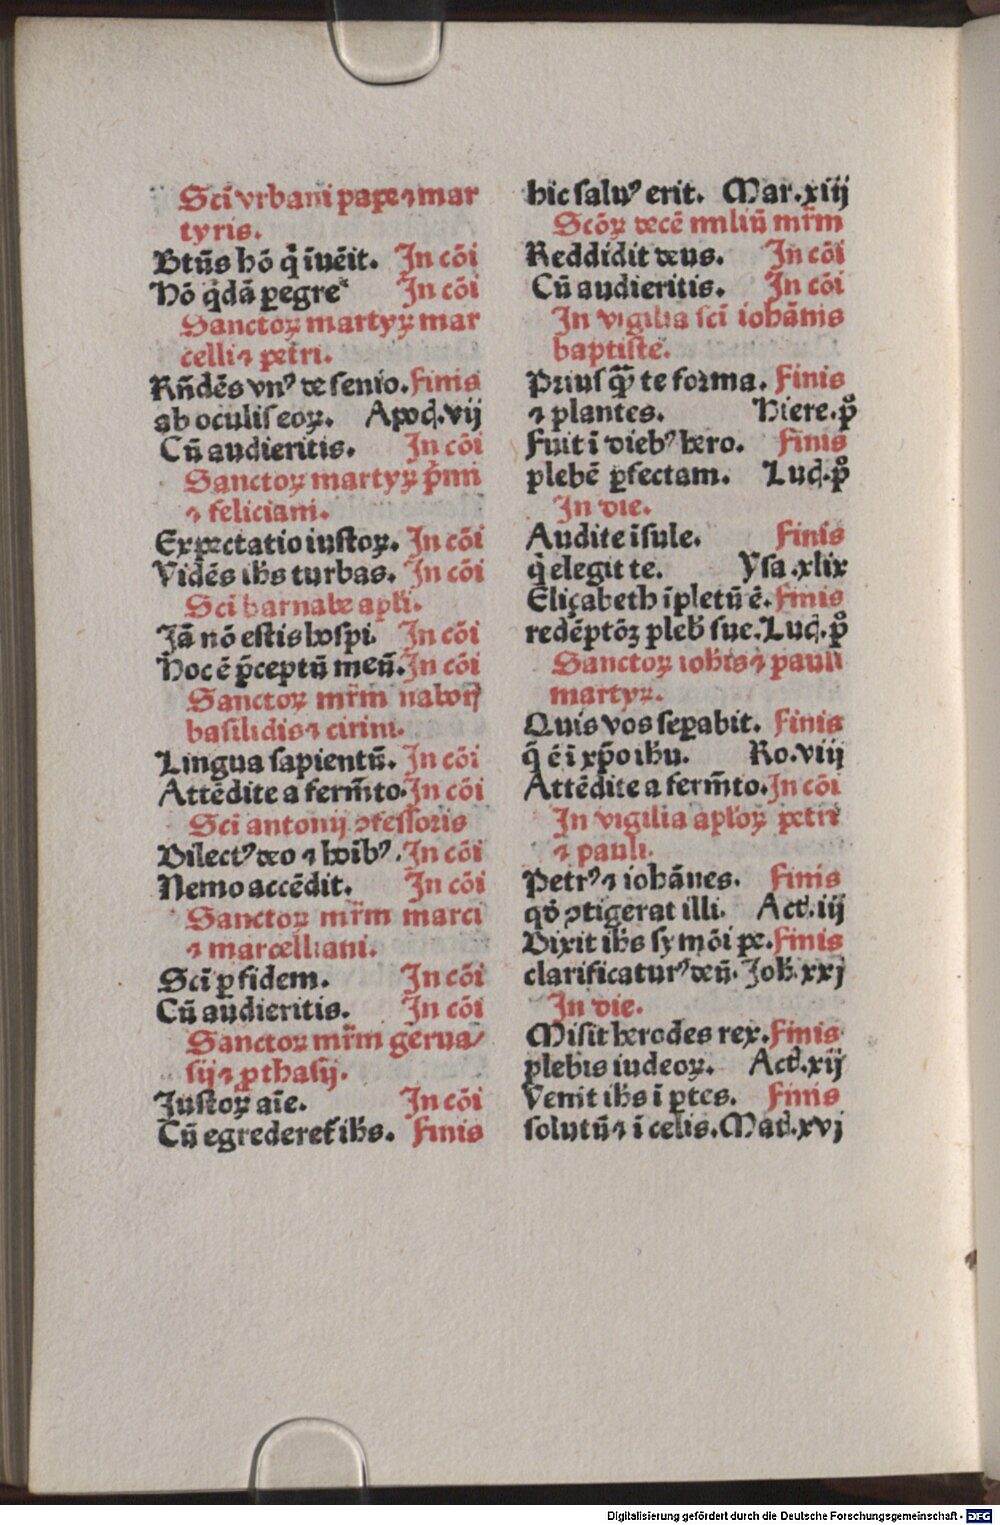 Sci vrbani pape ⁊ mar
tyris.
Btūs hō q̄ īuēit. In cōi
Hō q̄dā ꝑegreꝰ In cōi
Sanctoꝝ martyꝝ mar
celli ⁊ petri.
Rn̄dēs vnꝰ de senio. Finis
ab oculiſ eoꝝ. Apoc̄.vij
Cū audieritis. In cōi
Sanctoꝝ martyꝝ p̄mi
⁊ feliciani.
Expectatio iustoꝝ. In cōi
Vidēs ihs turbas. In cōi
Sci barnabe apl̄i.
Jā nō estis hospi. In cōi
Hoc ē p̄ceptū meū. In cōi
Sanctoꝝ mr̄m naborꝭ
basilidis ⁊ cirini.
Lingua sapientū. In cōi
Attēdite a ferm̄to. In cōi
Sci antonij ꝯfessoris
Dilectꝰ deo ⁊ hoībꝰ. In cōi
Nemo accēdit. In cōi
Sanctoꝝ mr̄m marci
⁊ marcelliani.
Sci ꝑ fidem. In cōi
Cū audieritis. In cōi
Sanctoꝝ mr̄m gerua/
sij ⁊ ꝓthasij.
Iustoꝝ aīe. In cōi
Cū egrederet᷑ ihs. Finis
hic saluꝰ erit. Mar.xiij
Scōꝝ decē miliū mr̄m
Reddidit deus. In cōi
Cū audieritis. In cōi
In vigilia sci iohānis
baptiste.
Priusꝙ̄ te forma. Finis
⁊ plantes. Hiere.pͦ
Fuit ī diebꝰ hero. Finis
plebē ꝑfectam. Luc̄.pͦ
In die.
Audite īsule. Finis
q̄ elegit te. Ysa.xlix
Eliçabeth īpletū ē. Finis
redēptōꝫ pleb̄ sue. Luc̄.pͦ
Sanctoꝝ ioh̄is ⁊ pauli
martyꝝ.
Quis vos seꝑabit. Finis
q̄ ē ī xp̄o ihu. Ro.viij
Attēdite a ferm̄to. In cōi
In vigilia apl̄oꝝ petri
⁊ pauli.
Petrꝰ ⁊ iohānes. Finis
qd̄ ꝯtigerat illi. Act̄.iij
Dixit ihs symōi pe. Finis
clarificaturꝰ deū. Joh̄.xxj
In die.
Misit herodes rex. Finis
plebis iudeoꝝ. Act̄.xij
Venit ihs ī ꝑtes. Finis
solutū ⁊ ī celis. Mat̄.xvj
Digitalisierung gefördert durch die Deutsche Forschungsgemeinschaft - DFG